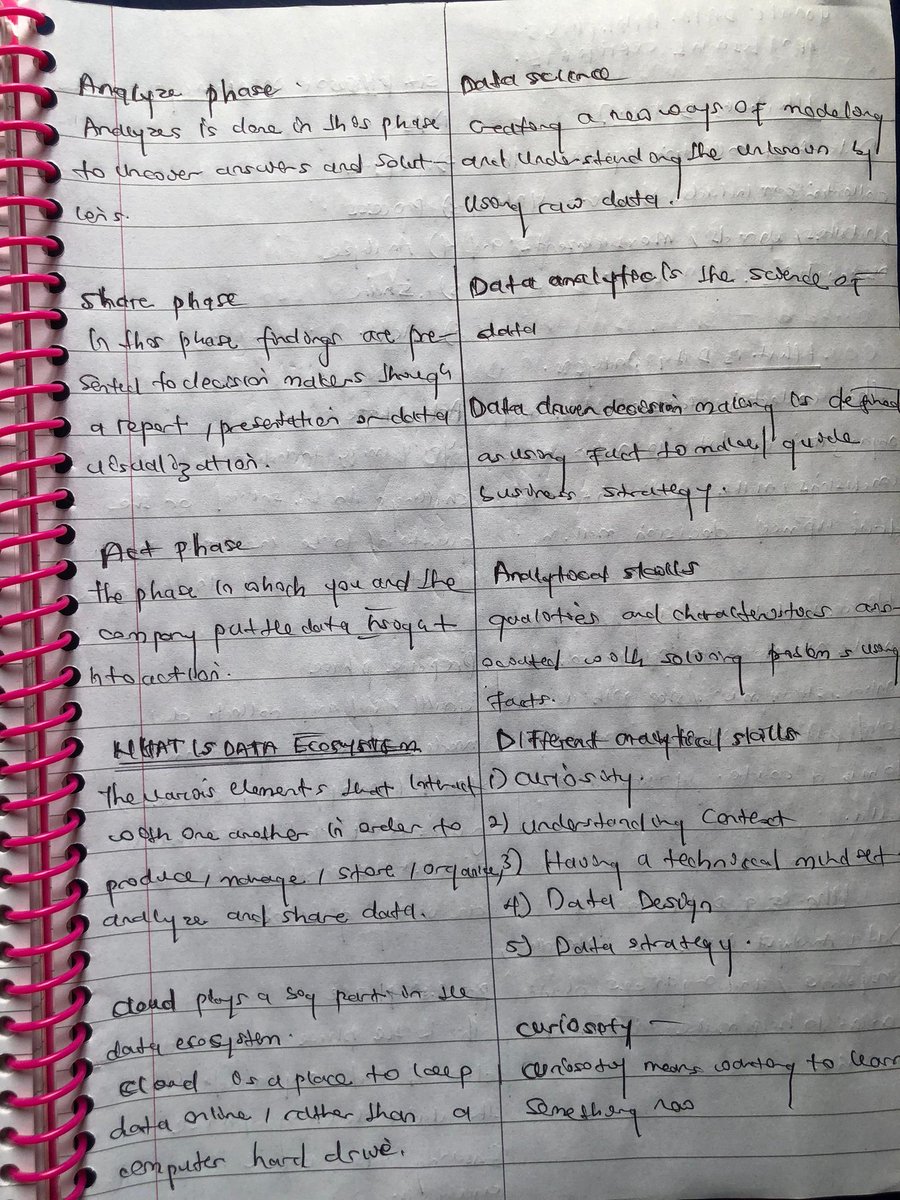 Analyze phase.
Analyzes is done in this phase
to uncover answers and solut-
ions.
Share phase
In this phase findings are pre-
sented to decision makers though
a report, presentation or data
visualization.
Act phase
The phase in which you and the
company put the data insight
into action.
WHAT IS DATA ECOSYSTEM
The various elements that interact
with one another in order to
produce, manage, store, organize,
analyze and share data.
Cloud plays a big part in the
data ecosystem.
Cloud is a place to keep
data online, rather than a
computer hard drive.
Data science
Creating a new ways of modeling
and understanding the unknown by
using raw data.
Data analytics is the science of
data
Data driven decision making is defined
as using fact to make/guide
business strategy.
Analytical skills
qualities and characteristics ass-
ociated with solving problems using
facts.
Different analytical skills
1) Curiosity.
2) Understanding Context
3) Having a technical mindset
4) Data Design
5) Data strategy.
curiosity -
curiosity means wanting to learn
something new